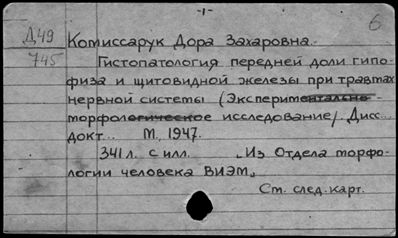 -1-
6
Д49
745
Комиссарук Дора Захаровна.
Гистопатология передней доли гипо-
физа и щитовидной железы при травмах
нервной системы (Эксперимentально-
морфологическое исследование). Дисс...
докт... М., 1947.
341 л. с илл. „Из Отдела морфо-
логии человека ВИЭМ„
См. след. карт.